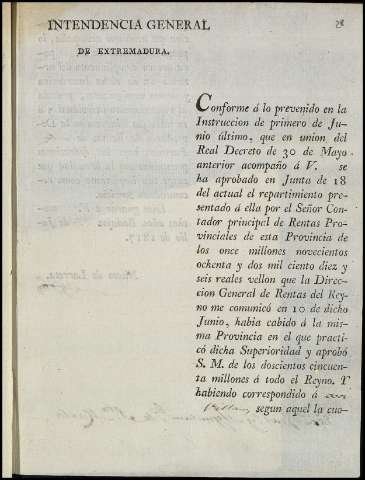 INTENDENCIA GENERAL
DE EXTREMADURA.
Conforme á lo prevenido en la
Instruccion de primero de Ju-
nio último, que en union del
Real Decreto de 30 de Mayo
anterior acompaño á V. se
ha aprobado en Junta de 18
del actual el repartimiento pre-
sentado á ella por el Señor Con-
tador principal de Rentas Pro-
vinciales de esta Provincia de
los once millones novecientos
ochenta y dos mil ciento diez y
seis reales vellon que la Direc-
cion General de Rentas del Rey-
no me comunicó en 10 de dicho
Junio, habia cabido á la mis-
ma Provincia en el que practi-
có dicha Superioridad y aprobó
S. M. de los doscientos cincuen-
ta millones á todo el Reyno. Y
habiendo correspondido á
segun aquel la cuo-